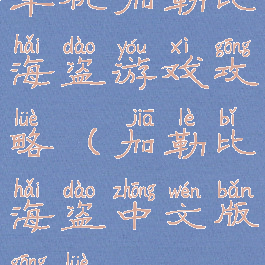 hǎi dào yóu xì gōng
海盗游戏攻
lüè jiā lè bǐ
略(加勒比
hǎi dào zhōng wén bǎn
海盗中文版
gōng lüè